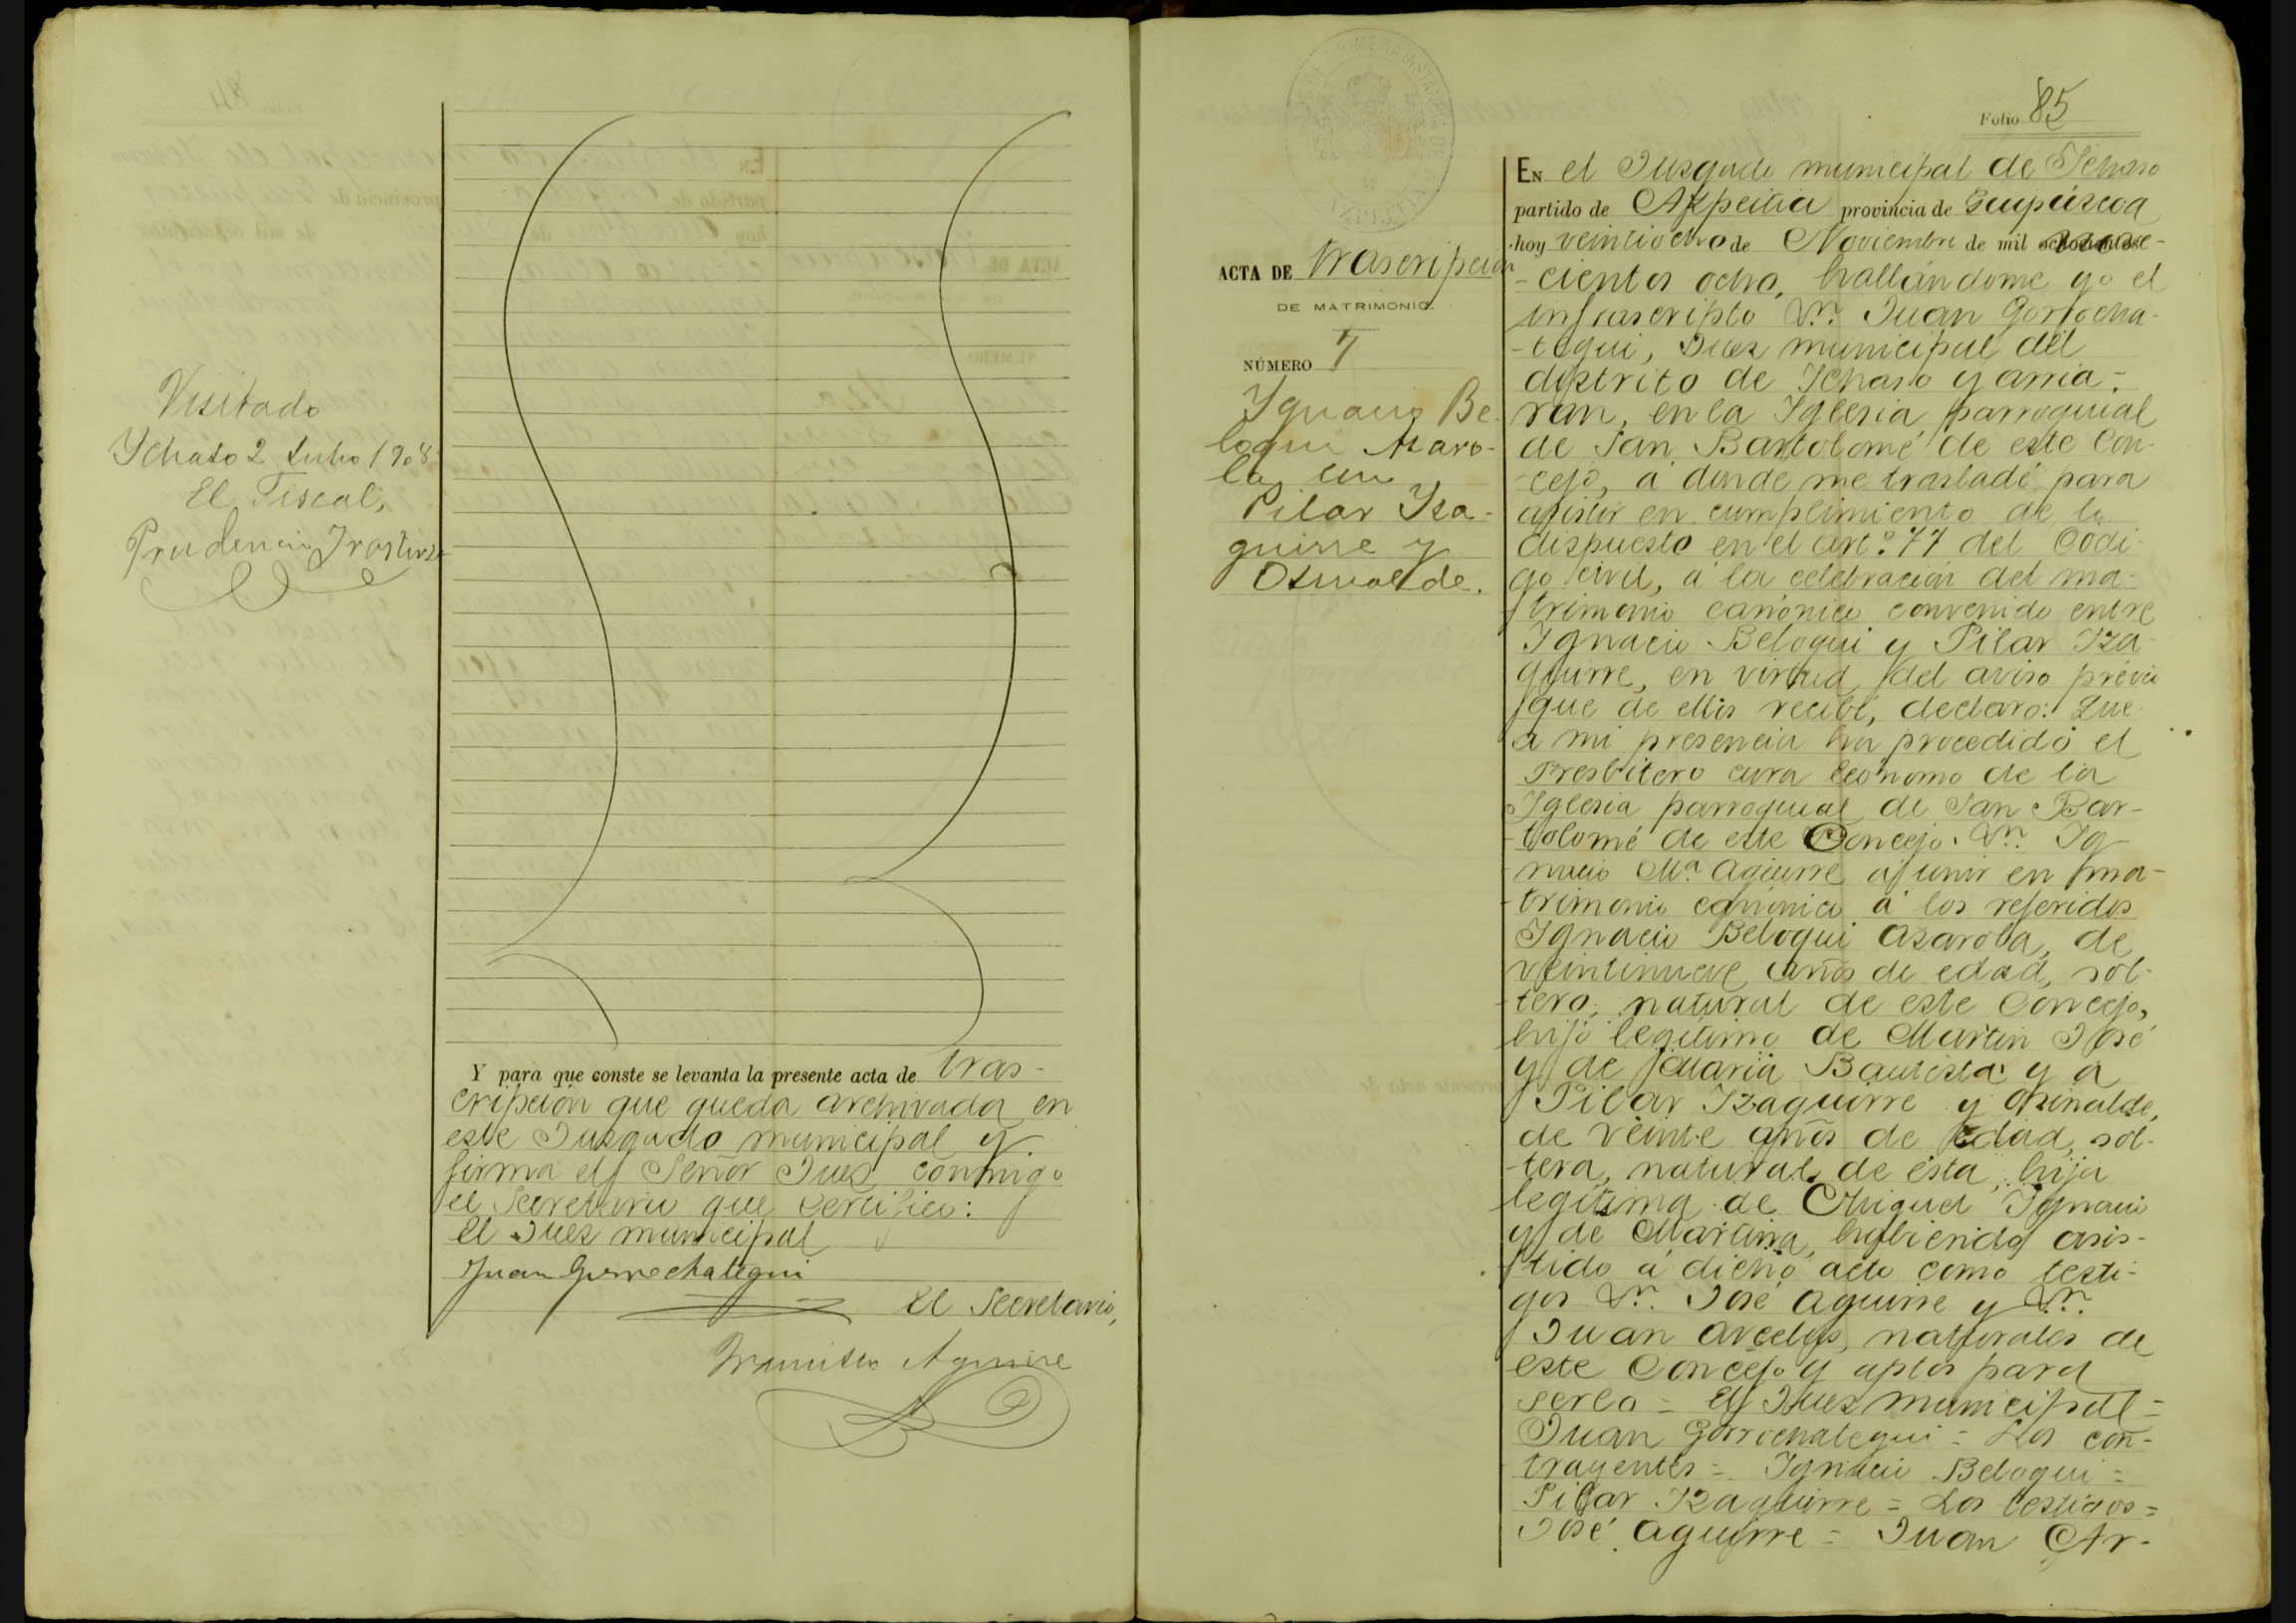 Visitado
Ychaso 2 Julio 1908
El Fiscal,
Prudencio
Y para que conste se levanta la presente acta de tras-
cripción que queda archivada en
este Juzgado municipal y
firma el Señor Juez conmigo
el Secretario que certifico:
El Juez municipal
Juan Gorrochategui
El Secretario,
Aguirre
Folio 85
ACTA DE trascripción
DE MATRIMONIO.
NÚMERO 7
Ygnacio Be-
loqui Azaro-
la con
Pilar Yza-
guirre y
Osinalde.
EN el Juzgado municipal de Ichaso
partido de Azpeitia provincia de Guipúzcoa
hoy veintiocho de Noviembre de mil nove-
-cientos ocho, hallándome yo el
infrascripto Dn. Juan Gorrocha-
-tegui, Juez municipal del
distrito de Ichaso y Arria-
ran, en la Iglesia parroquial
de San Bartolomé de este Con-
-cejo, á donde me trasladé para
asistir en cumplimiento de lo
dispuesto en el artº. 77 del Códi-
go civil, á la celebración del ma-
trimonio canónico convenido entre
Ignacio Beloqui y Pilar Iza-
guirre, en virtud del aviso prévio
que de ellos recibí, declaro: Que
a mi presencia ha procedido el
Presbítero cura Ecónomo de la
Iglesia parroquial de San Bar-
-tolomé de este Concejo. Dn. Ig-
nacio Mª Aguirre á unir en ma-
-trimonio canónico á los referidos
Ignacio Beloqui Azarola, de
veintinueve años de edad, sol-
-tero, natural de este Concejo,
hijo legítimo de Martin José
y de Maria Bautista y a
Pilar Izaguirre y Osinalde,
de veinte años de Edad, sol-
-tera, natural de ésta, hija
legítima de Miguel Ignacio
y de Martina, habiendo asis-
tido á dicho acto como testi-
gos Dn. José Aguirre y Dn.
Juan Arcelus, naturales de
este Concejo y aptos para
serlo = El Juez municipal =
Juan Gorrochategui = Los con-
trayentes = Ignacio Beloqui =
Pilar Izaguirre = Los testigos =
José Aguirre = Juan Ar-